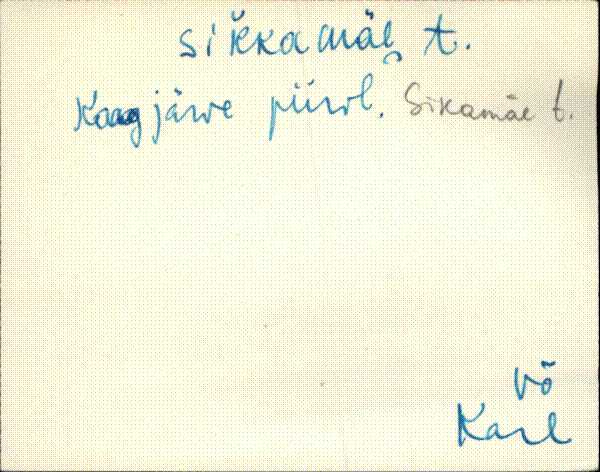 sikkamäe t.
Kaagjärve piirl. Sikamäe t.
Võ
Karl